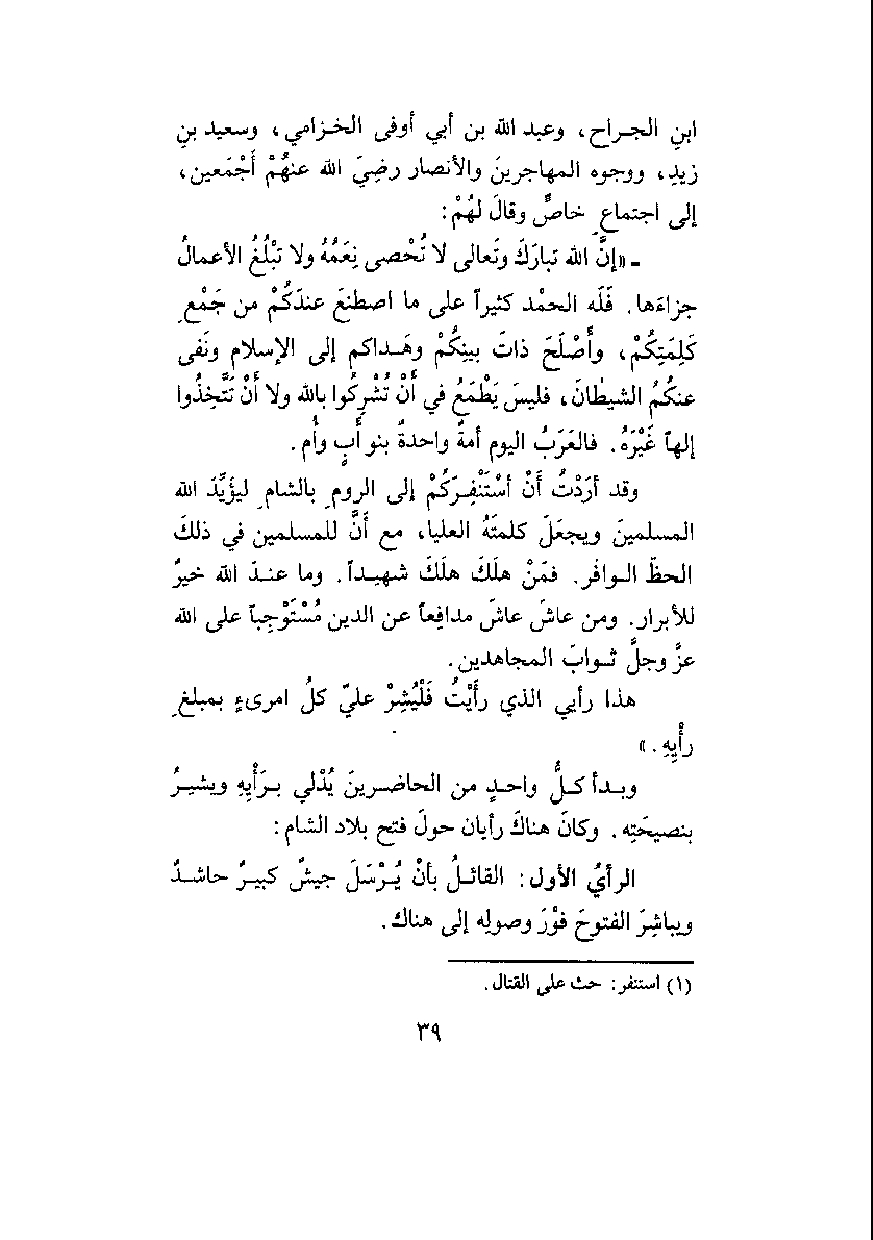 ابنِ الجـراح، وعبد الله بن أبي أوفى الخـزامي، وسعيد بنِ
زيدٍ، ووجوه المهاجرينَ والأنصار رضِيَ الله عنهُمْ أَجْمَعين،
إلى اجتماعٍ خاصٍّ وقالَ لهُمْ:
ـ «إنَّ الله تبارَكَ وتَعالى لا تُحْصى نِعَمُهُ ولا تَبْلُغُ الأعمالُ
جزاءَها. فَلَه الحمْد كثيراً على ما اصطنَعَ عندَكُمْ من جَمْعِ
كَلِمَتِكُمْ، وأَصْلَحَ ذاتَ بينِكُمْ وهَـداكم إلى الإسلام ونَفى
عنكُمُ الشيطانَ، فليسَ يَطْمَعُ في أَنْ تُشْرِكُوا بالله ولا أَنْ تَتَّخِذُوا
إلهاً غَيْرَهُ. فالعَرَبُ اليوم أمةٌ واحدةٌ بنو أبٍ وأُم.
وقد أرَدْتُ أَنْ أسْتَنْفِـرَكُمْ إلى الرومِ بالشامِ ليؤَيِّدَ الله
المسلمينَ ويجعَلَ كلمتَهُ العليا، مع أَنَّ للمسلمين في ذلكَ
الحظّ الـوافر. فمَنْ هلَكَ هلَكَ شهيـداً. وما عنـدَ الله خيرٌ
للأبرار. ومن عاشَ عاشَ مدافِعاً عن الدين مُسْتَوْجِباً على الله
عزَّ وجلَّ ثـوابَ المجاهدين.
هذا رأيي الذي رأَيْتُ فَلْيُشِرْ عليّ كلُ امرىءٍ بمبلغِ
رأيِهِ. »
وبـدأ كـلُّ واحـدٍ من الحاضـرينَ يُدْلي بـرَأيِهِ ويشيـرُ
بنصيحَتِه. وكانَ هناكَ رأيان حولَ فتح بلاد الشام:
الرأيُ الأول: القائـلُ بأنْ يُـرْسَلَ جيشٌ كبيـرٌ حاشـدٌ
ويباشِرَ الفتوحَ فوْرَ وصولِه إلى هناك.
(١) استنفر: حث على القتال.
٣٩